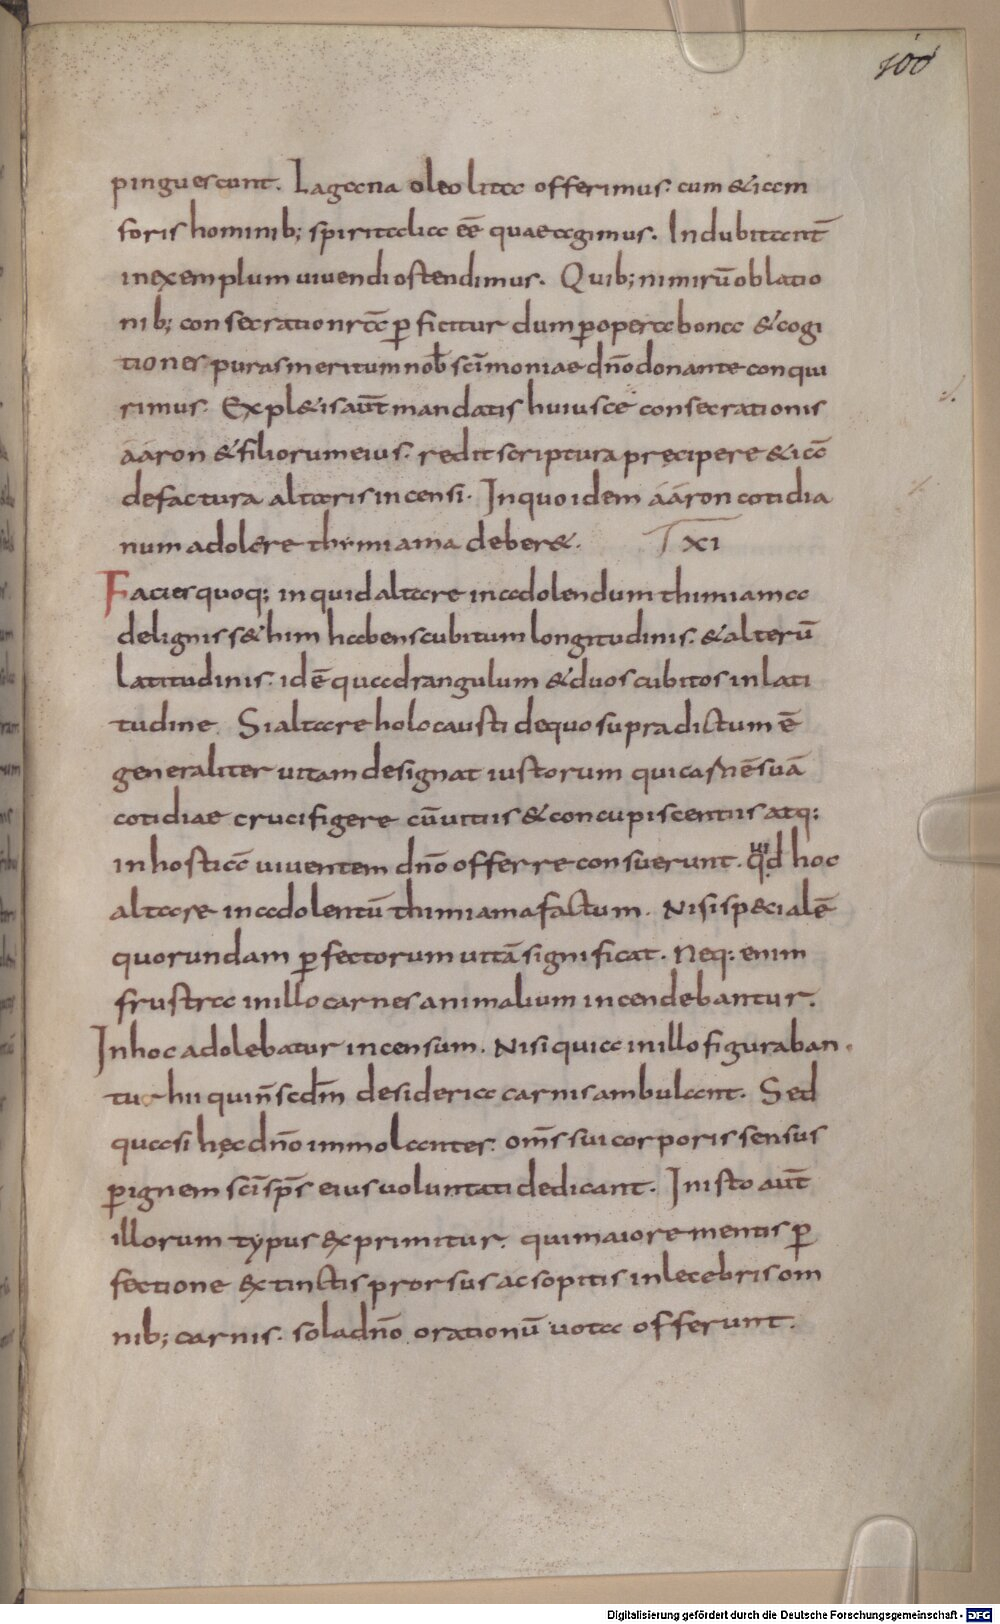 100
pinguescunt. Lagana oleo lita offerimus. cum &iam
foris hominib; spiritalia eē quae agimus. Indubitant̄
in exemplum uiuendi ostendimus. Quib; nimirū oblatio
nib; consecratio rite ꝑficitur dum ꝑ opera bona & cogi
tiones puras meritum nob̄ sc̄imoniae dn̄o donante conqui
rimus. Expl&is aūt mandatis huiusce consecrationis
ááron & filiorum eius. redit scriptura pręcipere & iā
de factura altaris incensi. In quo idem ááron cotidia
num adolere thymiama deber&. T XI
Facies quoq; inquid altare in adolendum thimiama
de lignis s&him habens cubitum longitudinis. & alterū
latitudinis. idē quadrangulum & duos cubitos in lati
tudine. Si altare holocausti de quo supra dictum ē
generaliter uitam designat iustorum qui carnē suā
cotidiae crucifigere cū uitiis & concupiscentiis atq;
in hostiā uiuentem dn̄o offerre consuerunt. qđ hoc
altare in adolentū thimiama factum. Nisi sp&ialē
quorundam ꝑfectorum uitā significat. Neq; enim
frustra in illo carnes animalium incendebantur.
In hoc adolebatur incensum. Nisi quia in illo figuraban
tur hii qui n̄ scd̄m desideria carnis ambulant. Sed
quasi hęc dn̄o immolantes. om̄s sui corporis sensus
ꝑ ignem sc̄i sp̄s eius uoluntati dedicant. In isto aūt
illorum typus exprimitur. qui maiore mentis ꝑ
fectione extinctis prorsus ac sopitis inlecebris om
nib; carnis. sola dn̄o orationū uota offerunt.
Digitalisierung gefördert durch die Deutsche Forschungsgemeinschaft - DFG